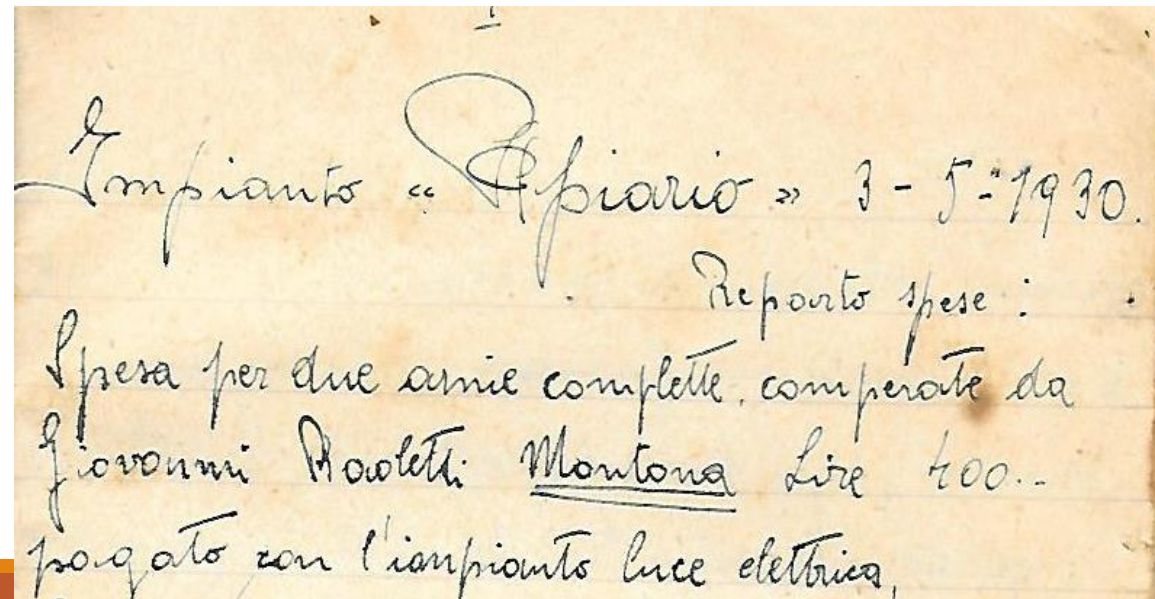 1
Impianto « Apiario » 3 - 5 - 1930.
Reparto spese :
Spesa per due arnie complette. comperate da
Giovanni Paoletti Montona Lire 400..
pagato con l'impianto luce elettrica,